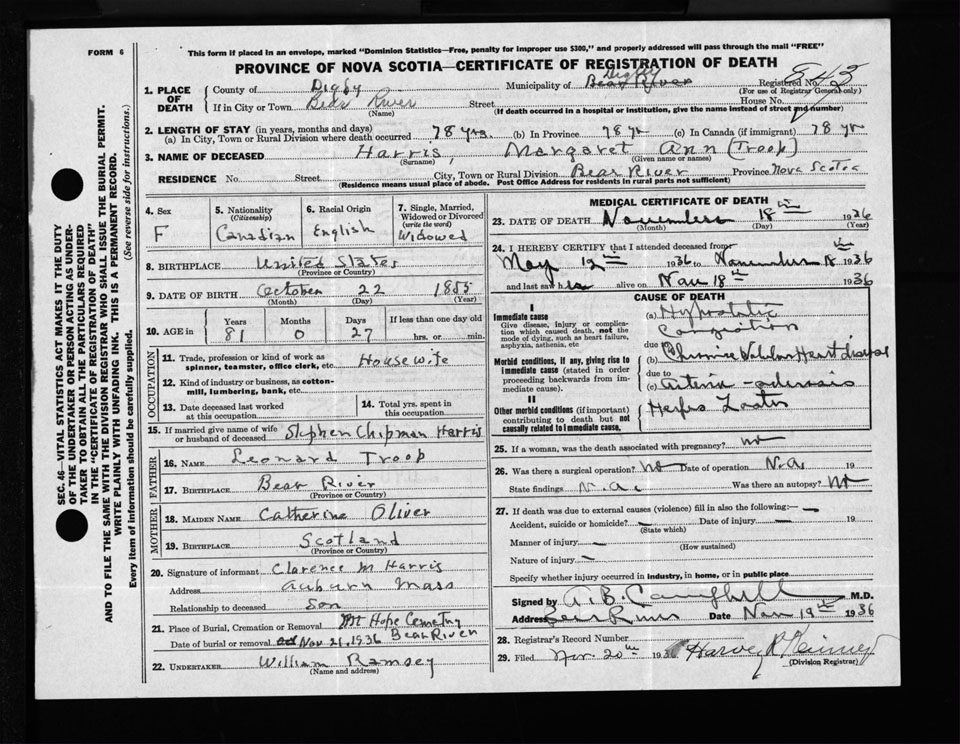 FORM 6
This form if placed in an envelope, marked "Dominion Statistics—Free, penalty for improper use $300," and properly addressed will pass through the mail "FREE"
PROVINCE OF NOVA SCOTIA—CERTIFICATE OF REGISTRATION OF DEATH
1. PLACE OF DEATH
County of Digby
Municipality of Bear River Digby
Registered No. 843
(For use of Registrar General only)
If in City or Town Bear River Street House No.
(Name)
(If death occurred in a hospital or institution, give the name instead of street and number)
2. LENGTH OF STAY (in years, months and days)
(a) In City, Town or Rural Division where death occurred 78 yrs. (b) In Province 78 yr (c) In Canada (if immigrant) 78 yr
3. NAME OF DECEASED Harris, Margaret Ann (Troop)
(Surname) (Given name or names)
RESIDENCE No. Street City, Town or Rural Division Bear River Province Nova Scotia
(Residence means usual place of abode. Post Office Address for residents in rural parts not sufficient)
4. Sex
F
5. Nationality
(Citizenship)
Canadian
6. Racial Origin
English
7. Single, Married, Widowed or Divorced
(write the word)
Widowed
8. BIRTHPLACE United States
(Province or Country)
9. DATE OF BIRTH October 22 1855
(Month) (Day) (Year)
10. AGE in
Years Months Days If less than one day old
81 0 27 hrs. or min.
OCCUPATION
11. Trade, profession or kind of work as spinner, teamster, office clerk, etc. Housewife
12. Kind of industry or business, as cotton-mill, lumbering, bank, etc.
13. Date deceased last worked at this occupation
14. Total yrs. spent in this occupation
15. If married give name of wife or husband of deceased Stephen Chipman Harris
FATHER
16. NAME Leonard Troop
17. BIRTHPLACE Bear River
(Province or Country)
MOTHER
18. MAIDEN NAME Catherine Oliver
19. BIRTHPLACE Scotland
(Province or Country)
20. Signature of informant Clarence M Harris
Address Auburn Mass
Relationship to deceased Son
21. Place of Burial, Cremation or Removal Mt Hope Cemetry
Date of burial or removal Nov 21, 1936 Bear River
22. UNDERTAKER William Ramsey
(Name and address)
MEDICAL CERTIFICATE OF DEATH
23. DATE OF DEATH November 18th 1936
(Month) (Day) (Year)
24. I HEREBY CERTIFY that I attended deceased from
May 12th 1936 to November 18th 1936
and last saw her alive on Nov 18th 1936
CAUSE OF DEATH
I
Immediate cause
Give disease, injury or complication which caused death, not the mode of dying, such as heart failure, asphyxia, asthenia, etc
(a) Hypostatic Congestion
due to
Morbid conditions, if any, giving rise to immediate cause (stated in order proceeding backwards from immediate cause).
(b) Chronic Valvular Heart disease
due to
(c) Arterio-sclerosis
II
Other morbid conditions (if important) contributing to death but not causally related to immediate cause.
Herpes Zoster
25. If a woman, was the death associated with pregnancy? no
26. Was there a surgical operation? No Date of operation N.A. 19
State findings N.A. Was there an autopsy? No
27. If death was due to external causes (violence) fill in also the following:— —
Accident, suicide or homicide? — Date of injury — 19
(State which)
Manner of injury —
(How sustained)
Nature of injury —
Specify whether injury occurred in industry, in home, or in public place
Signed by A.B. Campbell M.D.
Address Bear River Date Nov 19th 1936
28. Registrar's Record Number
29. Filed Nov. 20th 1936 Harvey R
(Division Registrar)
SEC. 46—VITAL STATISTICS ACT MAKES IT THE DUTY
OF THE UNDERTAKER OR PERSON ACTING AS UNDERTAKER TO OBTAIN ALL THE PARTICULARS REQUIRED
IN THE "CERTIFICATE OF REGISTRATION OF DEATH"
AND TO FILE THE SAME WITH THE DIVISION REGISTRAR WHO SHALL ISSUE THE BURIAL PERMIT.
WRITE PLAINLY WITH UNFADING INK. THIS IS A PERMANENT RECORD.
Every item of information should be carefully supplied. (See reverse side for instructions.)